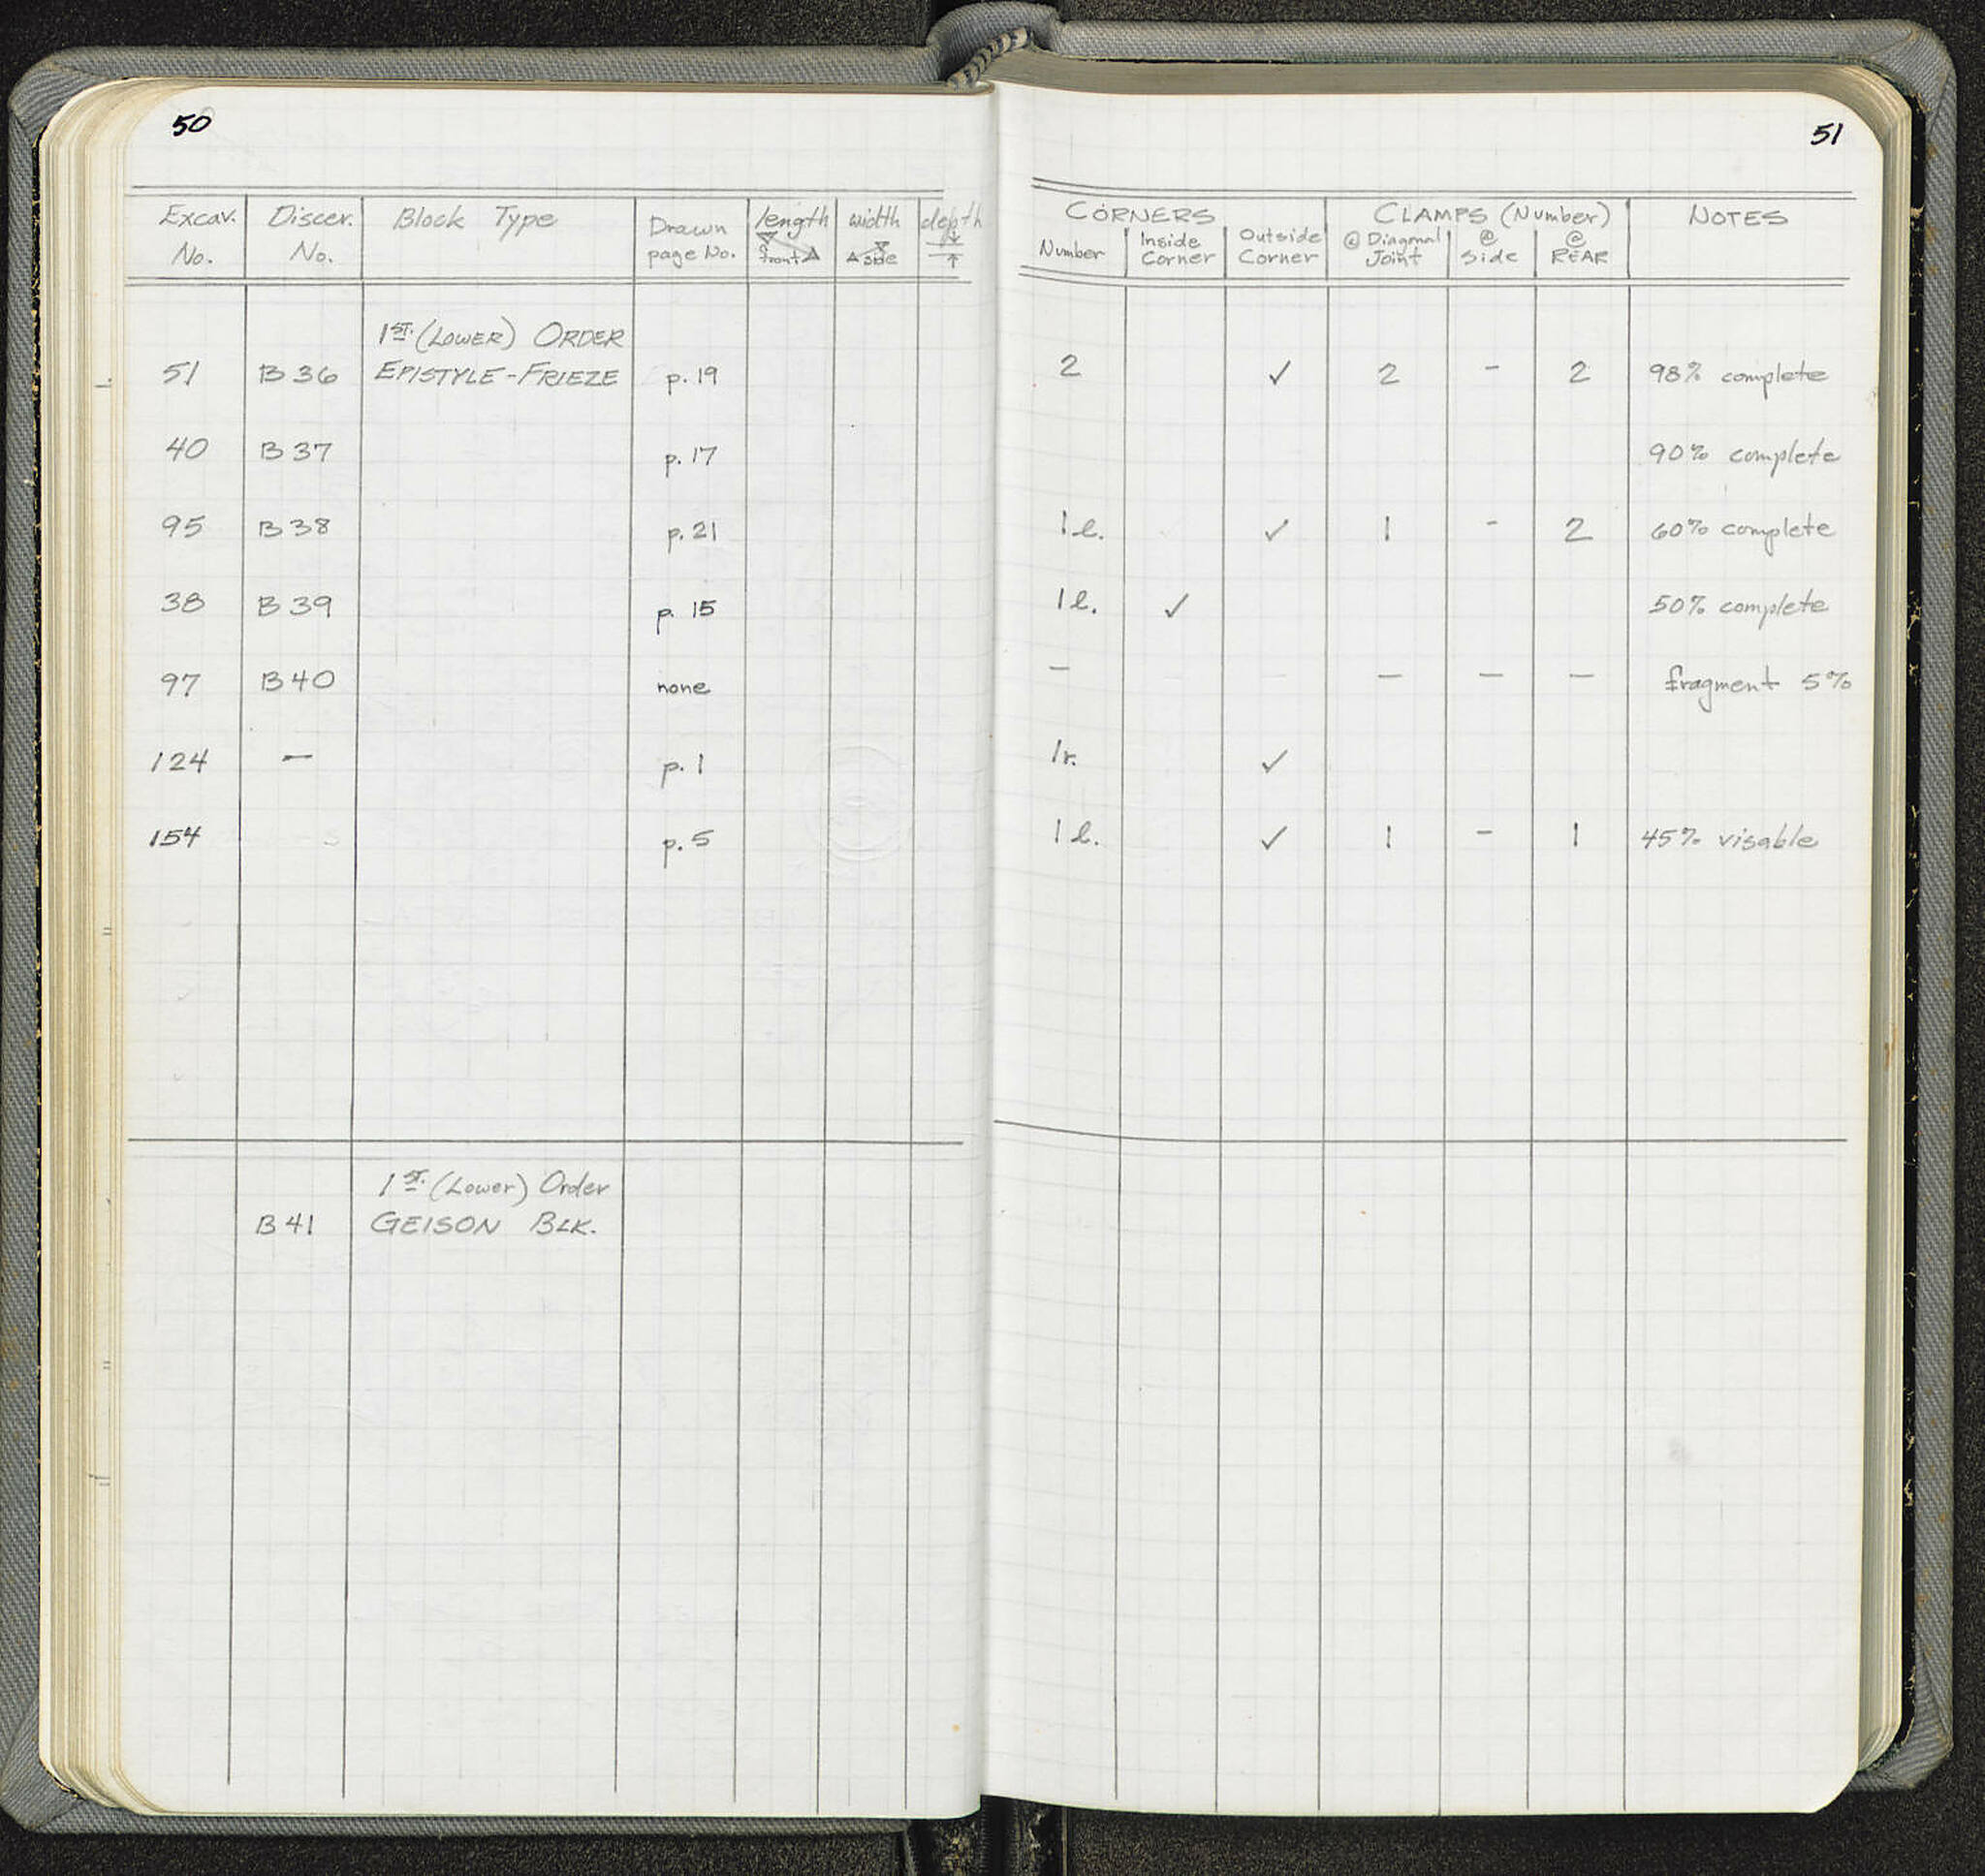 50
Excav. No. Discer. No. Block Type Drawn page No. length front width side depth
1st. (LOWER) ORDER
51 B 36 EPISTYLE-FRIEZE p. 19
40 B 37 p. 17
95 B 38 p. 21
38 B 39 p. 15
97 B 40 none
124 — p. 1
154 p. 5
1st. (Lower) Order
B 41 GEISON BLK.
51
CORNERS CLAMPS (Number) NOTES
Number Inside Corner Outside Corner @ Diagonal Joint @ Side @ REAR
2 ✓ 2 - 2 98% complete
90% complete
1 l. ✓ 1 - 2 60% complete
1 l. ✓ 50% complete
— — — — fragment 5%
1 r. ✓
1 l. ✓ 1 - 1 45% visable